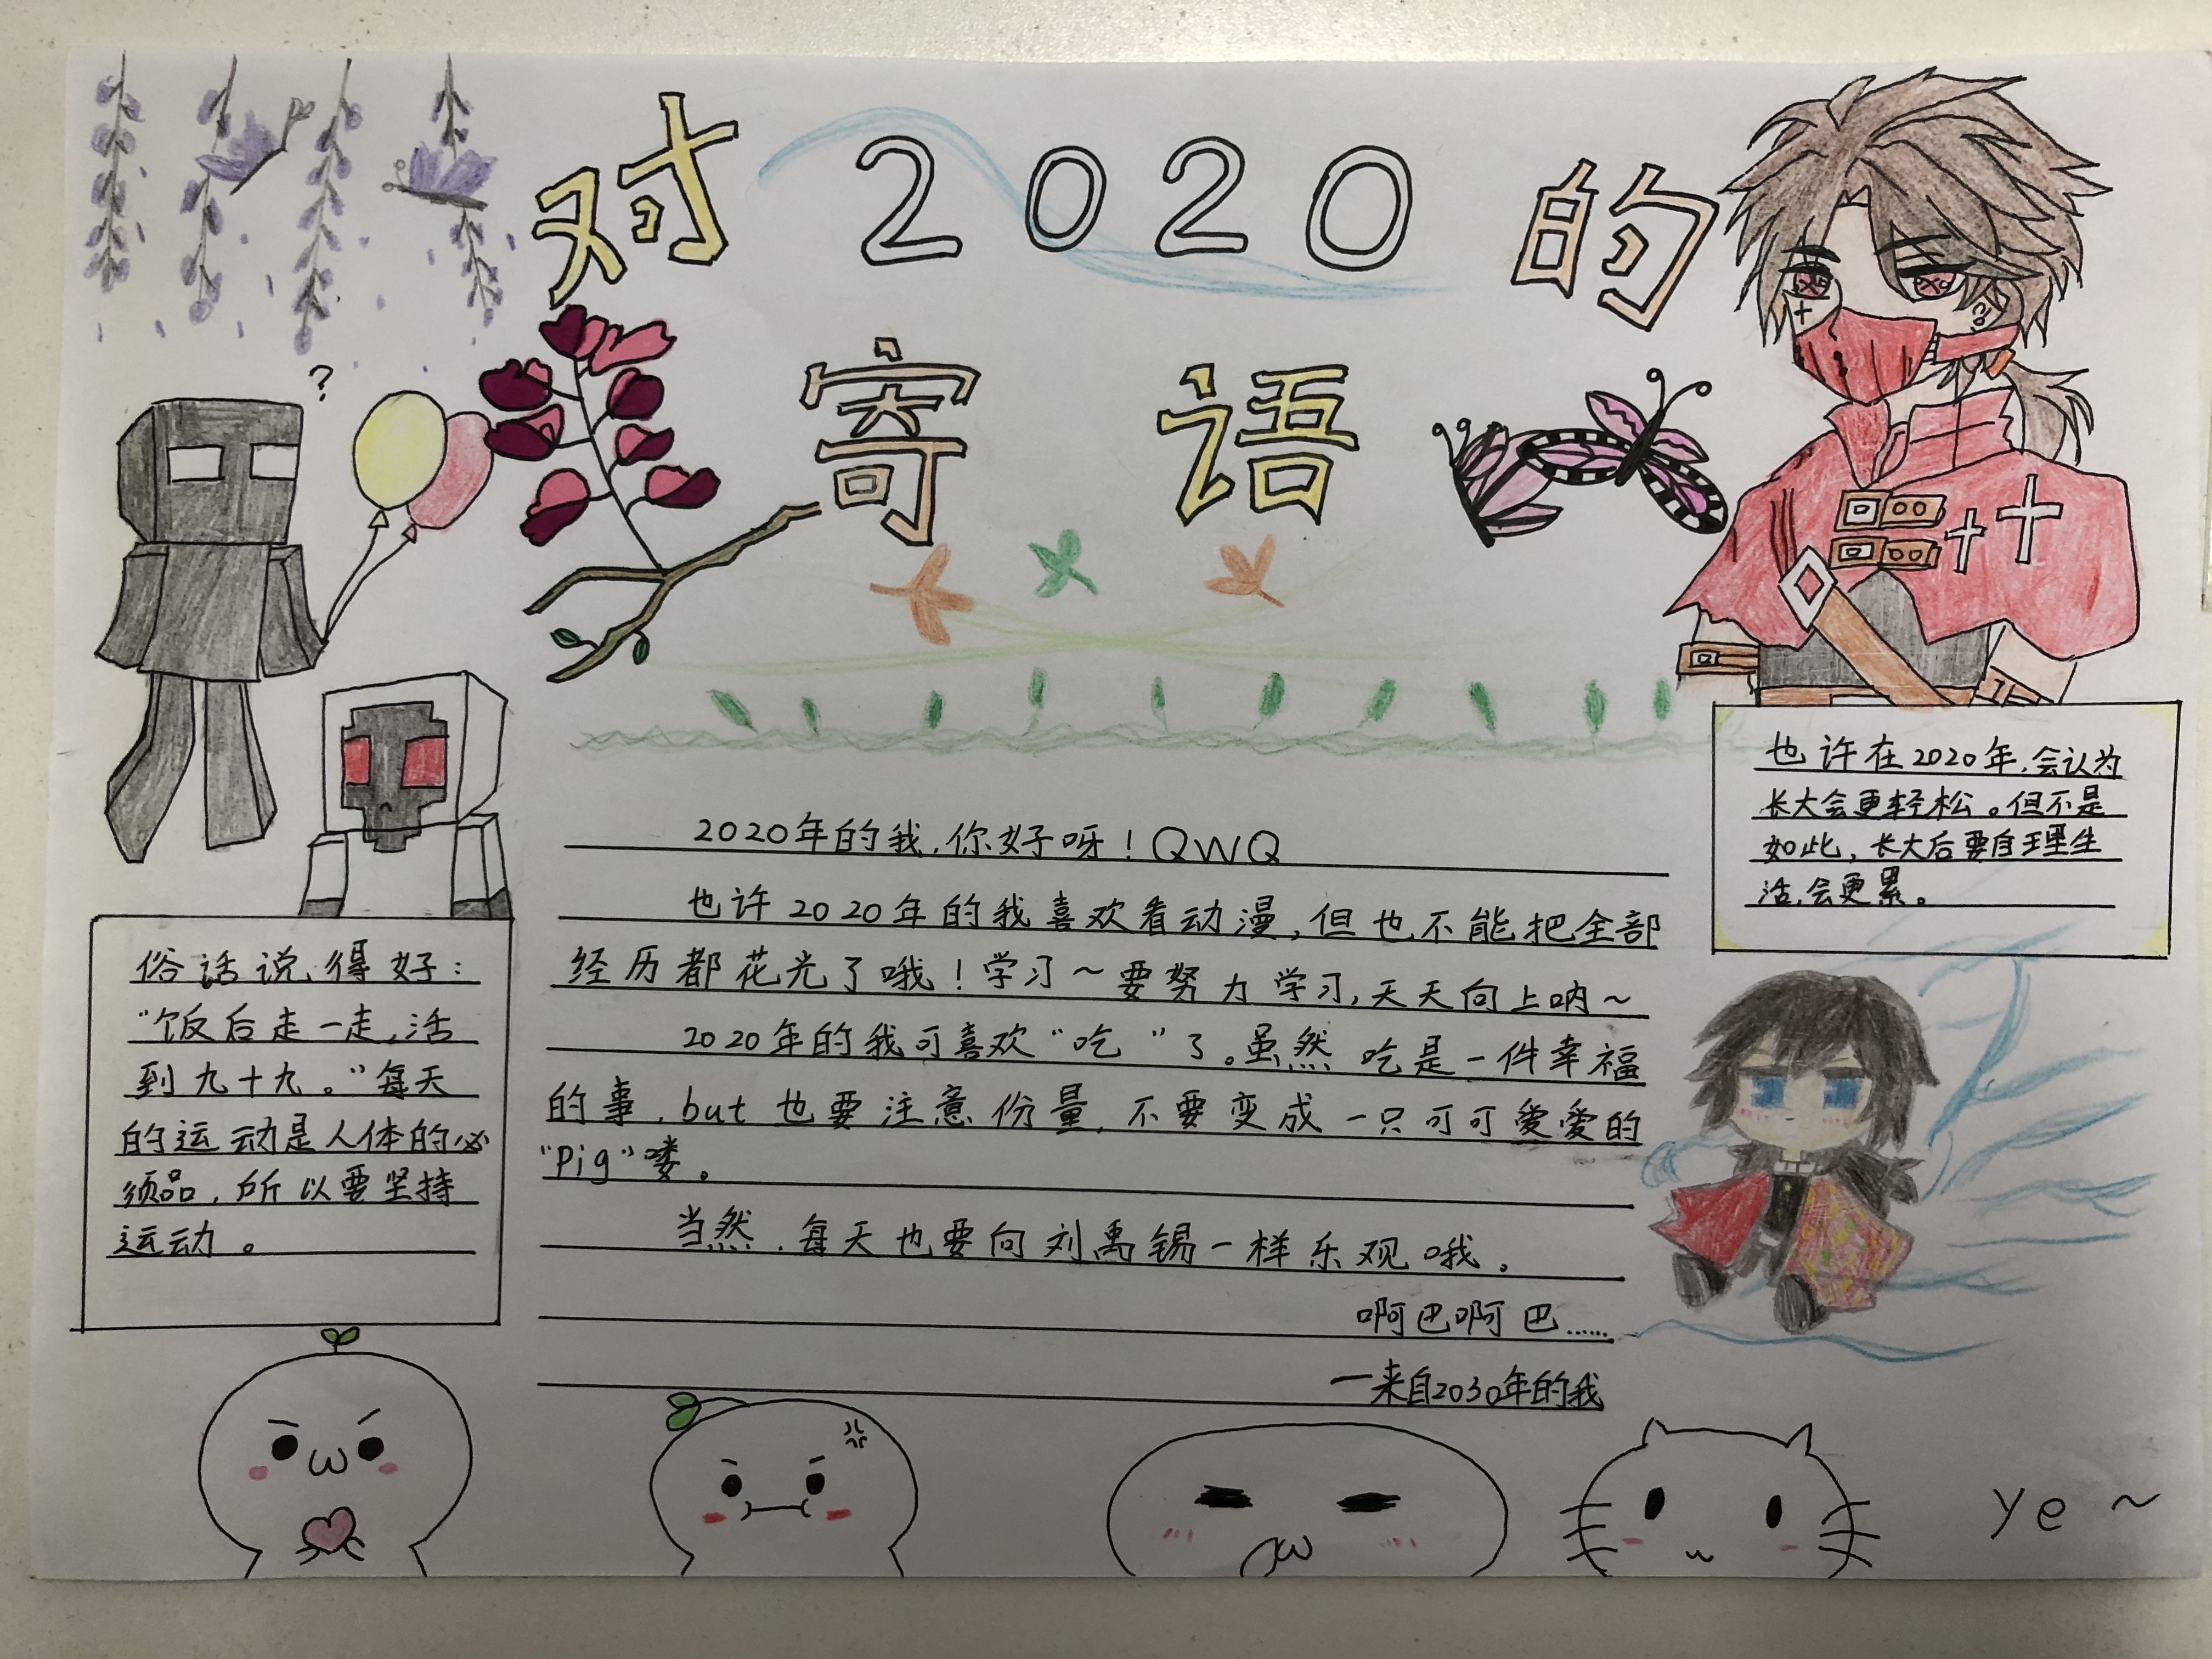 对2020的
寄语
?
2020年的我,你好呀!QWQ
也许2020年的我喜欢看动漫,但也不能把全部
经历都花光了哦!学习~要努力学习,天天向上呐~
2020年的我可喜欢“吃”了。虽然吃是一件幸福
的事,but也要注意份量,不要变成一只可可爱爱的
“Pig”喽。
当然,每天也要向刘禹锡一样乐观哦。
啊巴啊巴……
一来自2030年的我
也许在2020年,会认为
长大会更轻松。但不是
如此,长大后要自理生
活,会更累。
俗话说得好:
“饭后走一走,活
到九十九。”每天
的运动是人体的必
须品,所以要坚持
运动。
ye~